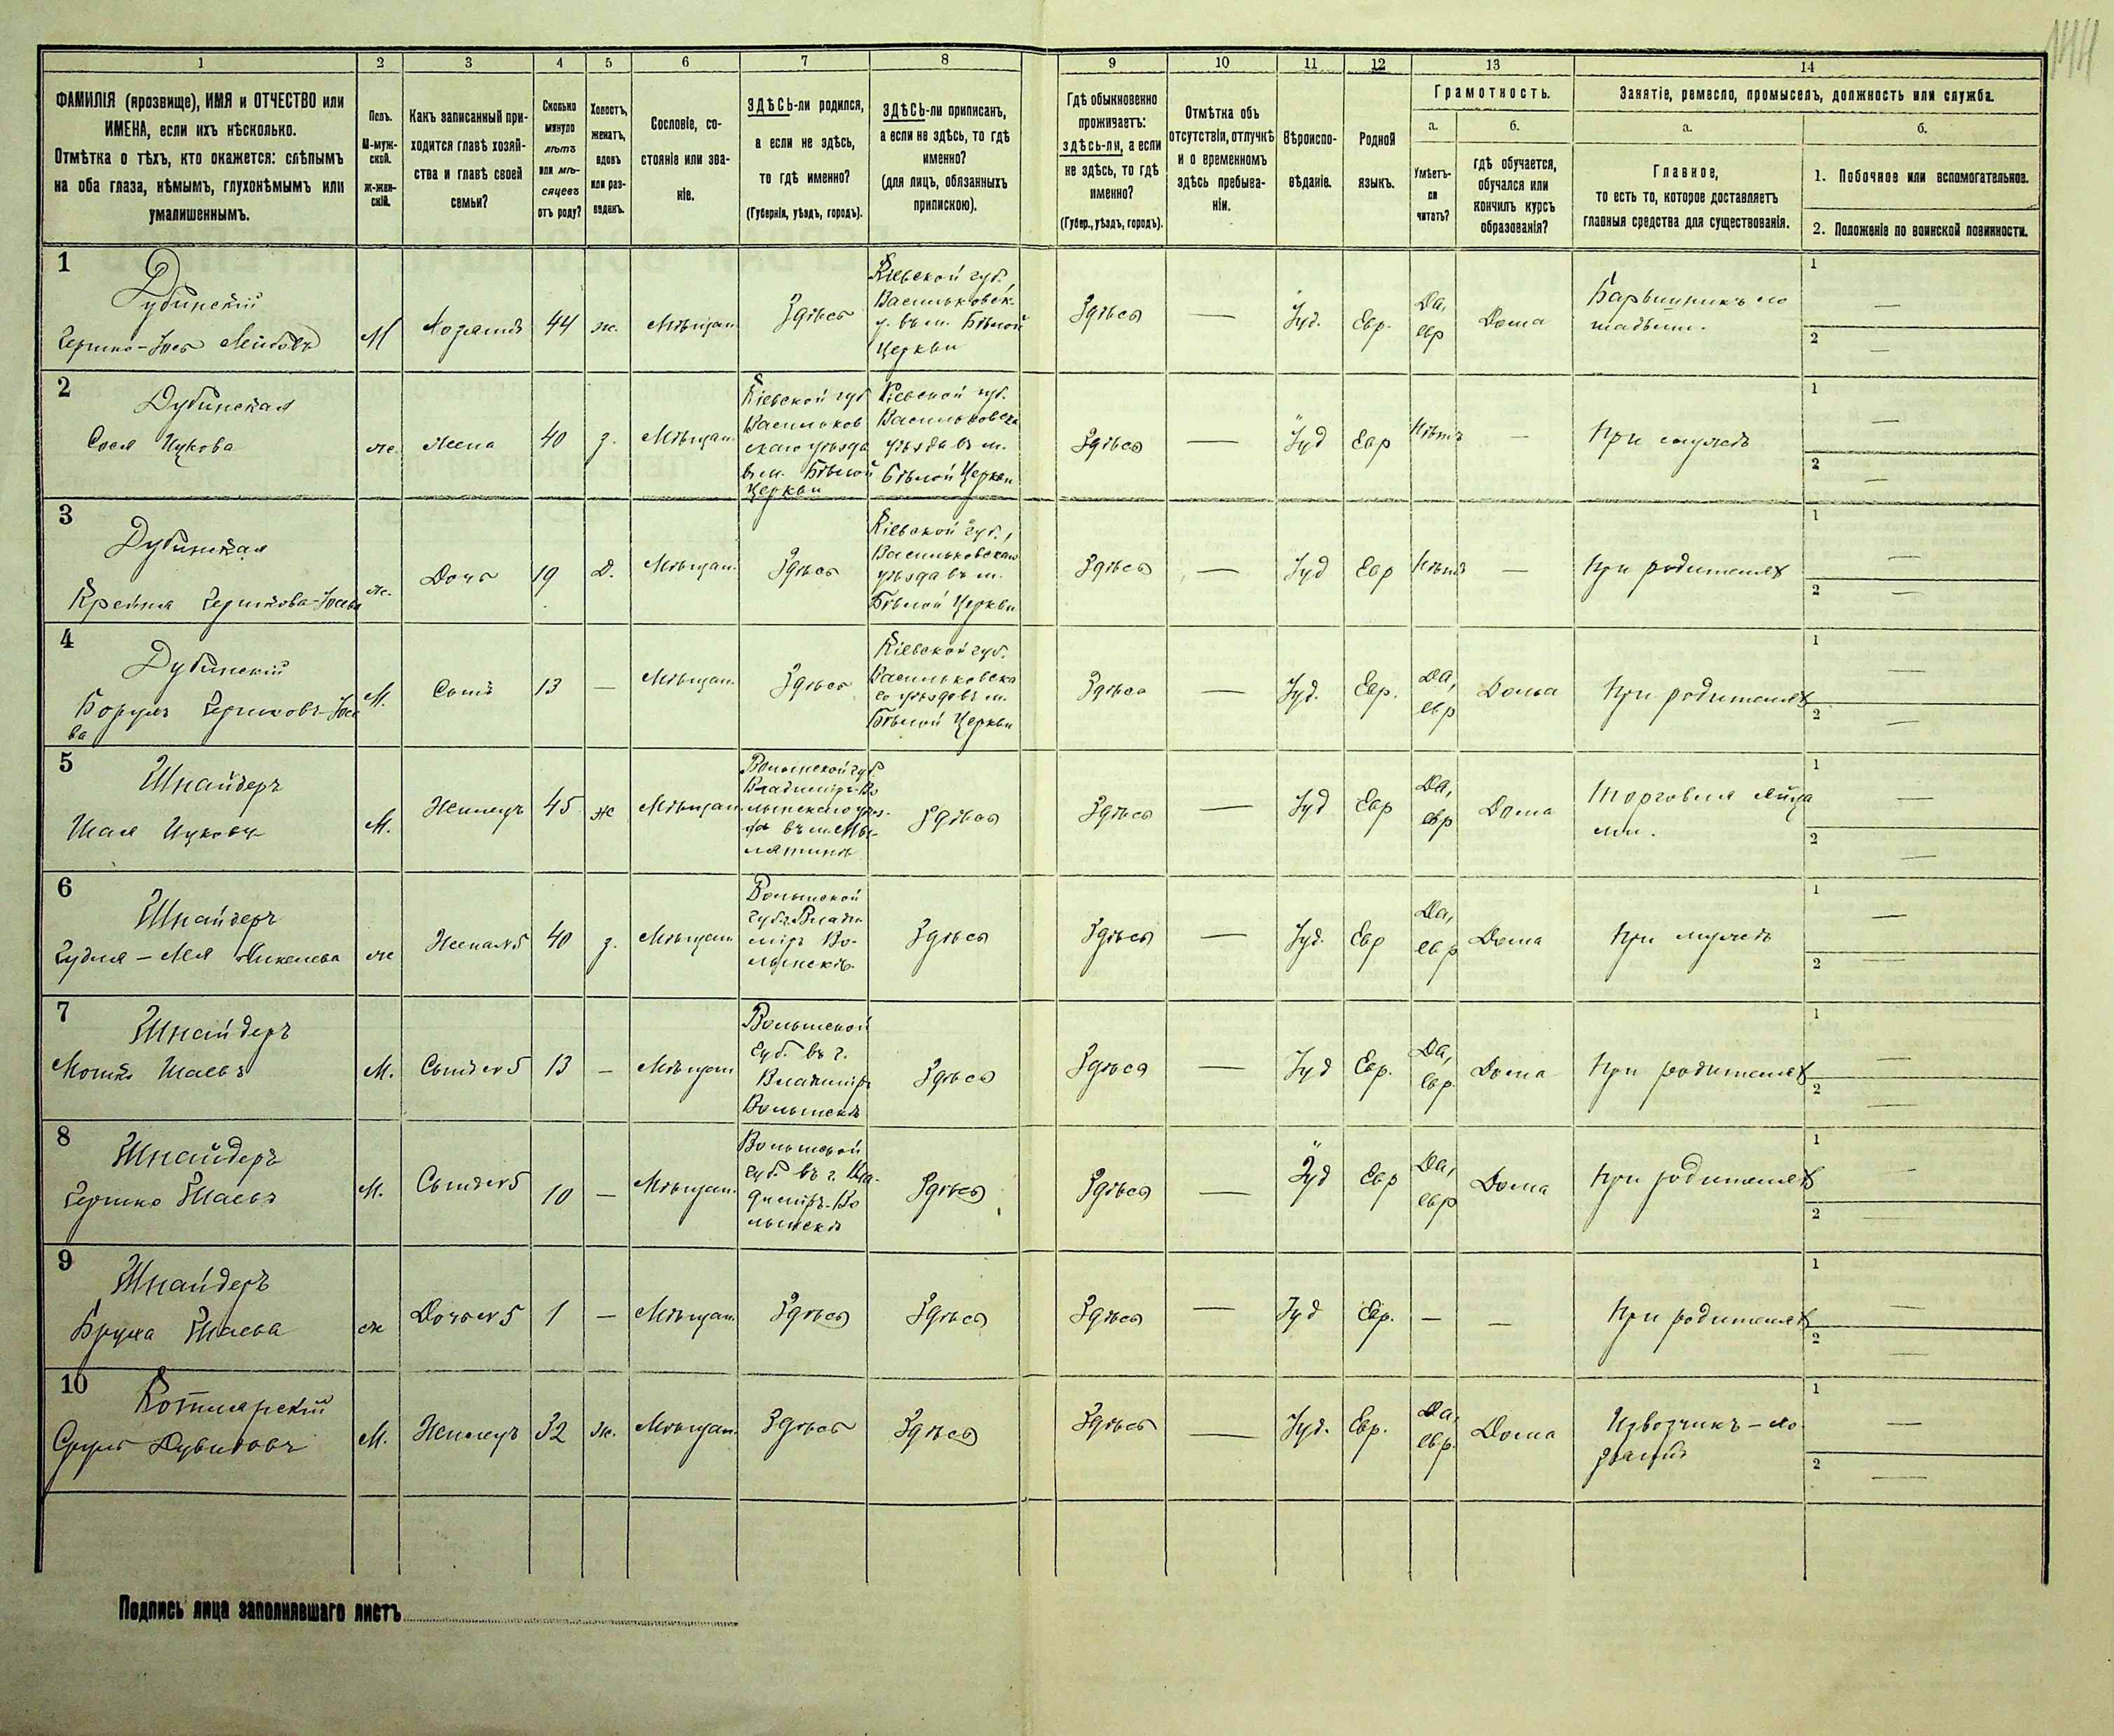 144
1 2 3 4 5 6 7 8 9 10 11 12 13 14
ФАМИЛІЯ (прозвище), ИМЯ и ОТЧЕСТВО или
ИМЕНА, если ихъ нѣсколько.
Отмѣтка о тѣхъ, кто окажется: слѣпымъ
на оба глаза, нѣмымъ, глухонѣмымъ или
умалишеннымъ.
Полъ.
М-муж-
ской.
Ж-жен-
скій.
Какъ записанный при-
ходится главѣ хозяй-
ства и главѣ своей
семьи?
Сколько
минуло
лѣтъ
или мѣ-
сяцевъ
отъ роду?
Холостъ,
женатъ,
вдовъ
или раз-
веденъ.
Сословіе, со-
стояніе или зва-
ніе.
ЗДѢСЬ-ли родился,
а если не здѣсь,
то гдѣ именно?
(Губернія, уѣздъ, городъ).
ЗДѢСЬ-ли приписанъ,
а если не здѣсь, то гдѣ
именно?
(для лицъ, обязанныхъ
припискою).
Гдѣ обыкновенно
проживаетъ:
здѣсь-ли, а если
не здѣсь, то гдѣ
именно?
(Губер., уѣздъ, городъ).
Отмѣтка объ
отсутствіи, отлучкѣ
и о временномъ
здѣсь пребыва-
ніи.
Вѣроиспо-
вѣданіе.
Родной
языкъ.
Грамотность.
а.
Умѣетъ-
ли
читать?
б.
гдѣ обучается,
обучался или
кончилъ курсъ
образованія?
Занятіе, ремесло, промыселъ, должность или служба.
а.
Главное,
то есть то, которое доставляетъ
главныя средства для существованія.
б.
1. Побочное или вспомогательное.
2. Положеніе по воинской повинности.
1
Дубинскій
Гершко-Іось Лейбовъ
М
Хозяинъ
44
ж.
Мѣщан.
Здѣсь
Кіевской губ.
Васильковск.
у. въ м. Бѣлой
Церкви
Здѣсь
—
Іуд.
Евр.
Да,
евр
Дома
1 —
2 —
2
Дубинская
Сося Ицкова
ж.
Жена
40
з.
Мѣщан.
Кіевской губ
Васильков
скаго уѣзда
въ м. Бѣлой
Церкви
Кіевской губ.
Васильковска
уѣзда въ м.
Бѣлой Церкви
Здѣсь
—
Іуд
Евр
Нѣтъ
—
При мужѣ
1 —
2 —
3
Дубинская
Крейня Гершкова-Іосева
ж.
Дочь
19
д.
Мѣщан.
Здѣсь
Кіевской губ.,
Васильковскаго
уѣзда въ м.
Бѣлой Церкви
Здѣсь
—
Іуд
Евр
Нѣтъ
—
При родителяхъ
1 —
2 —
4
Дубинскій
Борухъ Гершковъ-Іосе
ва
М.
Сынъ
13
—
Мѣщан.
Здѣсь
Кіевской губ.
Васильковска
го уѣзда въ м.
Бѣлой Церкви
Здѣсь
—
Іуд.
Евр.
Да,
евр
Дома
При родителяхъ
1 —
2 —
5
Шнайдеръ
Шая Ицковъ
М.
Жилецъ
45
ж
Мѣщан.
Волынской губ
Владиміръ-Во
лынскаго уѣз-
да въ м.
Здѣсь
Здѣсь
—
Іуд
Евр
Да,
евр
Дома
Торговля яйца
ми.
1 —
2 —
6
Шнайдеръ
ж
Жена № 5
40
з.
Мѣщан
Волынской
губ. Влади
міръ Во-
лынскъ
Здѣсь
Здѣсь
—
Іуд.
Евр
Да,
евр
Дома
При мужѣ
1 —
2 —
7
Шнайдеръ
Мошко Шаевъ
М.
Сынъ № 5
13
—
Мѣщан
Волынской
губ. въ г.
Владиміръ
Волынскъ
Здѣсь
Здѣсь
—
Іуд
Евр.
Да,
евр.
Дома
При родителяхъ
1 —
2 —
8
Шнайдеръ
Гершко Шаевъ
М.
Сынъ № 5
10
—
Мѣщан.
Волынской
губ. въ г. Вла-
диміръ-Во
лынскъ
Здѣсь
Здѣсь
—
Іуд
Евр
Да,
евр
Дома
При родителяхъ
1 —
2 —
9
Шнайдеръ
Бруха Шаева
ж
Дочь № 5
1
—
Мѣщан.
Здѣсь
Здѣсь
Здѣсь
—
Іуд
Евр.
—
—
При родителяхъ
1 —
2 —
10
Котлярскій
Срулъ Дувидовъ
М.
Жилецъ
32
ж.
Мѣщан.
Здѣсь
Здѣсь
Здѣсь
—
Іуд.
Евр.
Да,
евр.
Дома
Извозчикъ – хо
зяинъ
1 —
2 —
Подпись лица заполнявшаго листъ